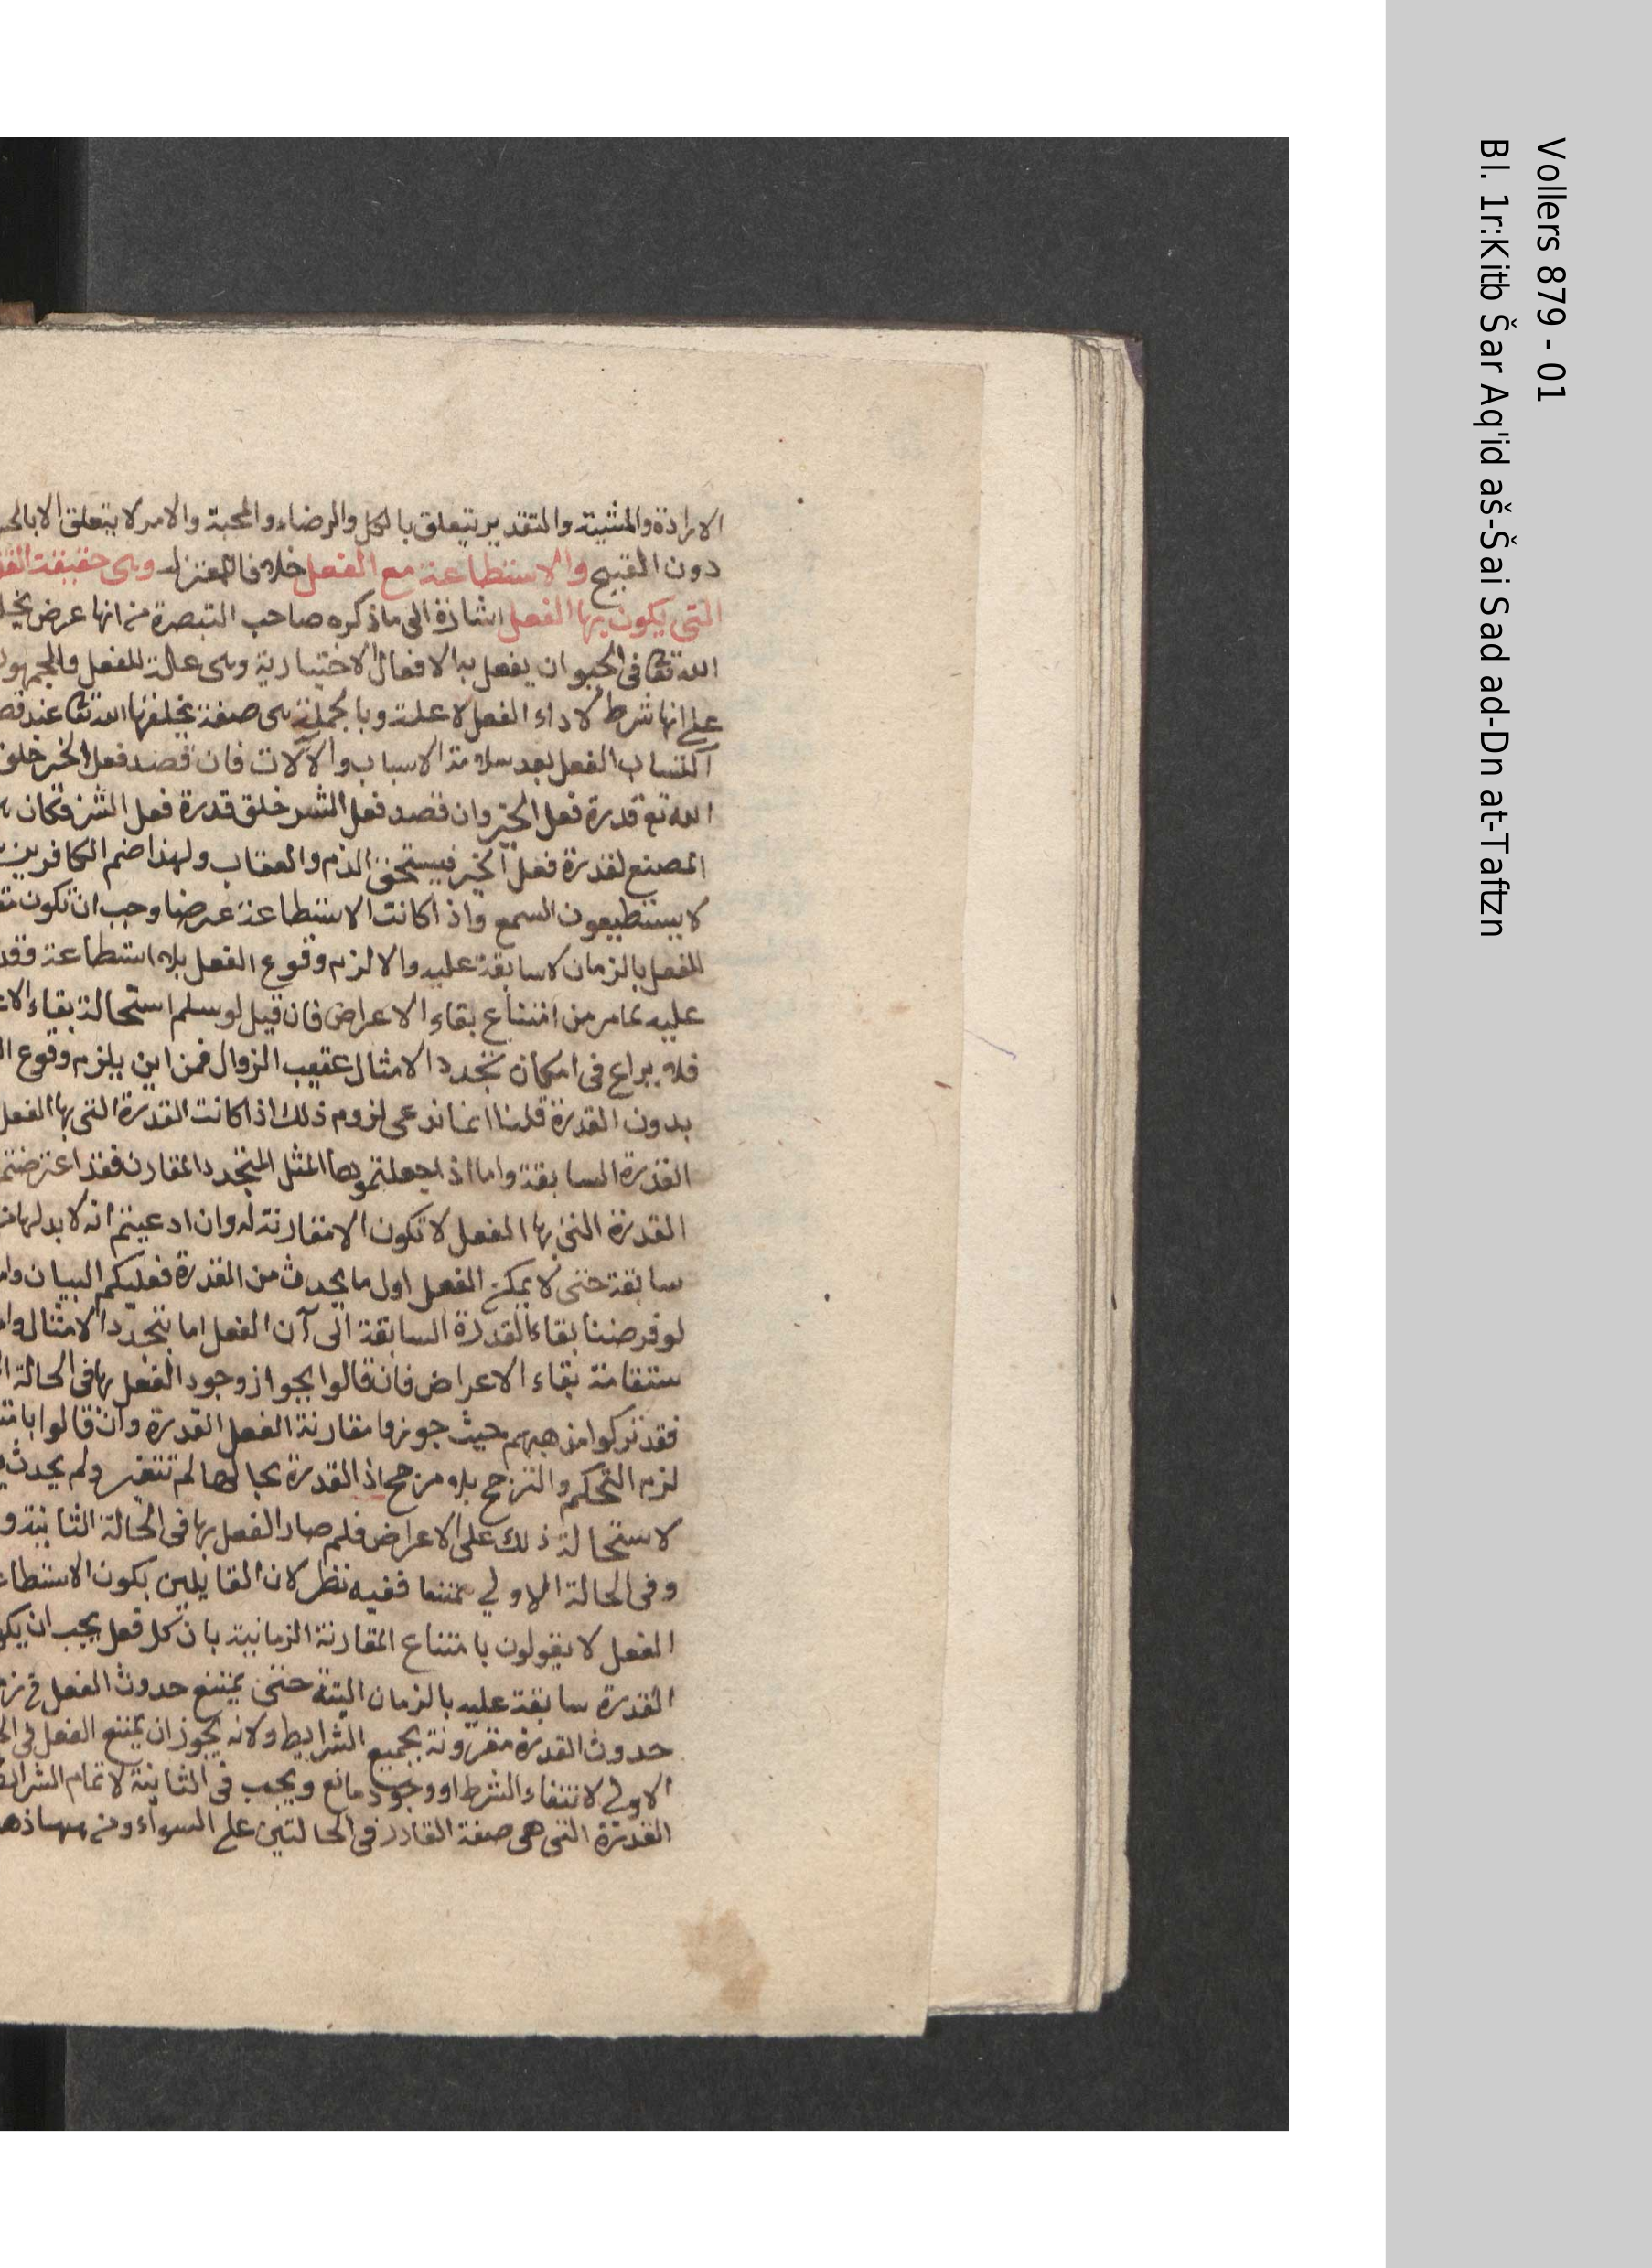 الارادة والمشية والتقدير يتعلق بالكل والرضاء والمحبة والامر لا يتعلق الا بالحس
دون القبيح والاستطاعة مع الفعل خلافا للمعتزلة وهى حقيقة القد
التى يكون بها الفعل اشارة الى ما ذكره صاحب التبصرة من انها عرض يخلـ
الله تعا فى الحيوان يفعل به الافعال الاختيارية وهى علة للفعل والجمهور
على انها شرط لاداء الفعل لا علة وبالجملة هى صفة يخلقها الله تعا عند قصد
اكتساب الفعل بعد سلامة الاسباب والآلات فان قصد فعل الخير خلق
الله تع قدرة فعل الخير وان قصد فعل الشر خلق قدرة فعل الشر فكان
المضيع لقدرة فعل الخير فيستحق الذم والعقاب ولهذا ضم الكافرين
لا يستطيعون السمع واذا كانت الاستطاعة عرضا وجب ان تكون مقـ
للفعل بالزمان لا سابقة عليه والا لزم وقوع الفعل بلا استطاعة وقد
عليه بما مر من امتناع بقاء الاعراض فان قيل لو سلم استحالة بقاء الاعـ
فلا نزاع فى امكان تجدد الامثال عقيب الزوال فمن اين يلزم وقوع ال
بدون القدرة قلنا انما ندعى لزوم ذلك اذا كانت القدرة التى بها الفعل
القدرة السابقة واما اذا جعلتموها المثل المتجدد المقارن فقد اعترضتم
القدرة التى بها الفعل لا تكون الا مقارنة له وان ادعيتم انه لا بد لها من
سابقة حتى لا يمكن الفعل اول ما يحدث من القدرة فعليكم البيان وامـ
لو فرضنا بقاء القدرة السابقة الى آن الفعل اما بتجدد الامثال وامـ
ستقامة بقاء الاعراض فان قالوا بجواز وجود الفعل بها فى الحالة ال
فقد تركوا مذهبهم حيث جوزوا مقارنة الفعل القدرة وان قالوا بامتـ
لزم التحكم والترجح بلا مرجح اذ القدرة بحالها لم تتغير ولم يحدث
لاستحالة ذلك على الاعراض فلم صار الفعل بها فى الحالة الثانية و
وفى الحالة الاولى ممتنعا ففيه نظر لان القايلين بكون الاستطاعـ
الفعل لا يقولون بامتناع المقارنة الزمانية بان كل فعل يجب ان يكو
القدرة سابقة عليه بالزمان البتة حتى يمتنع حدوث الفعل فى زمـ
حدوث القدرة مقرونة بجميع الشرايط ولانه يجوز ان يمتنع الفعل فى الحـ
الاولى لانتفاء الشرط او وجود مانع ويجب فى الثانية لاتمام الشرايط
القدرة التى هى صفة القادر فى الحالتين على السواء ومن ههنا ذهـ
Vollers 879 - 01
Bl. 1r:Kitb Šar Aq'id aš-Šai Sad ad-Dn at-Taftzn